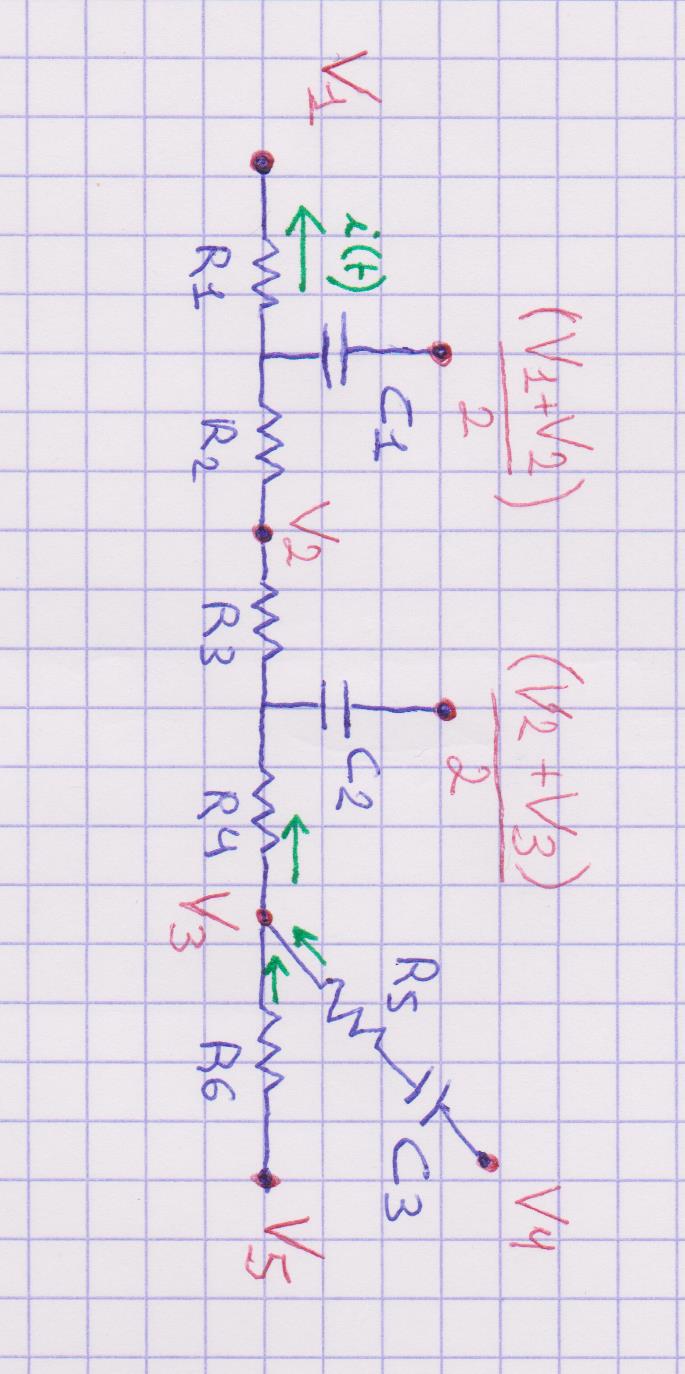 V1
i(t)
R1
C1
(V1+V2)
2
R2
V2
R3
C2
(V2+V3)
2
R4
V3
R5
C3
V4
R6
V5